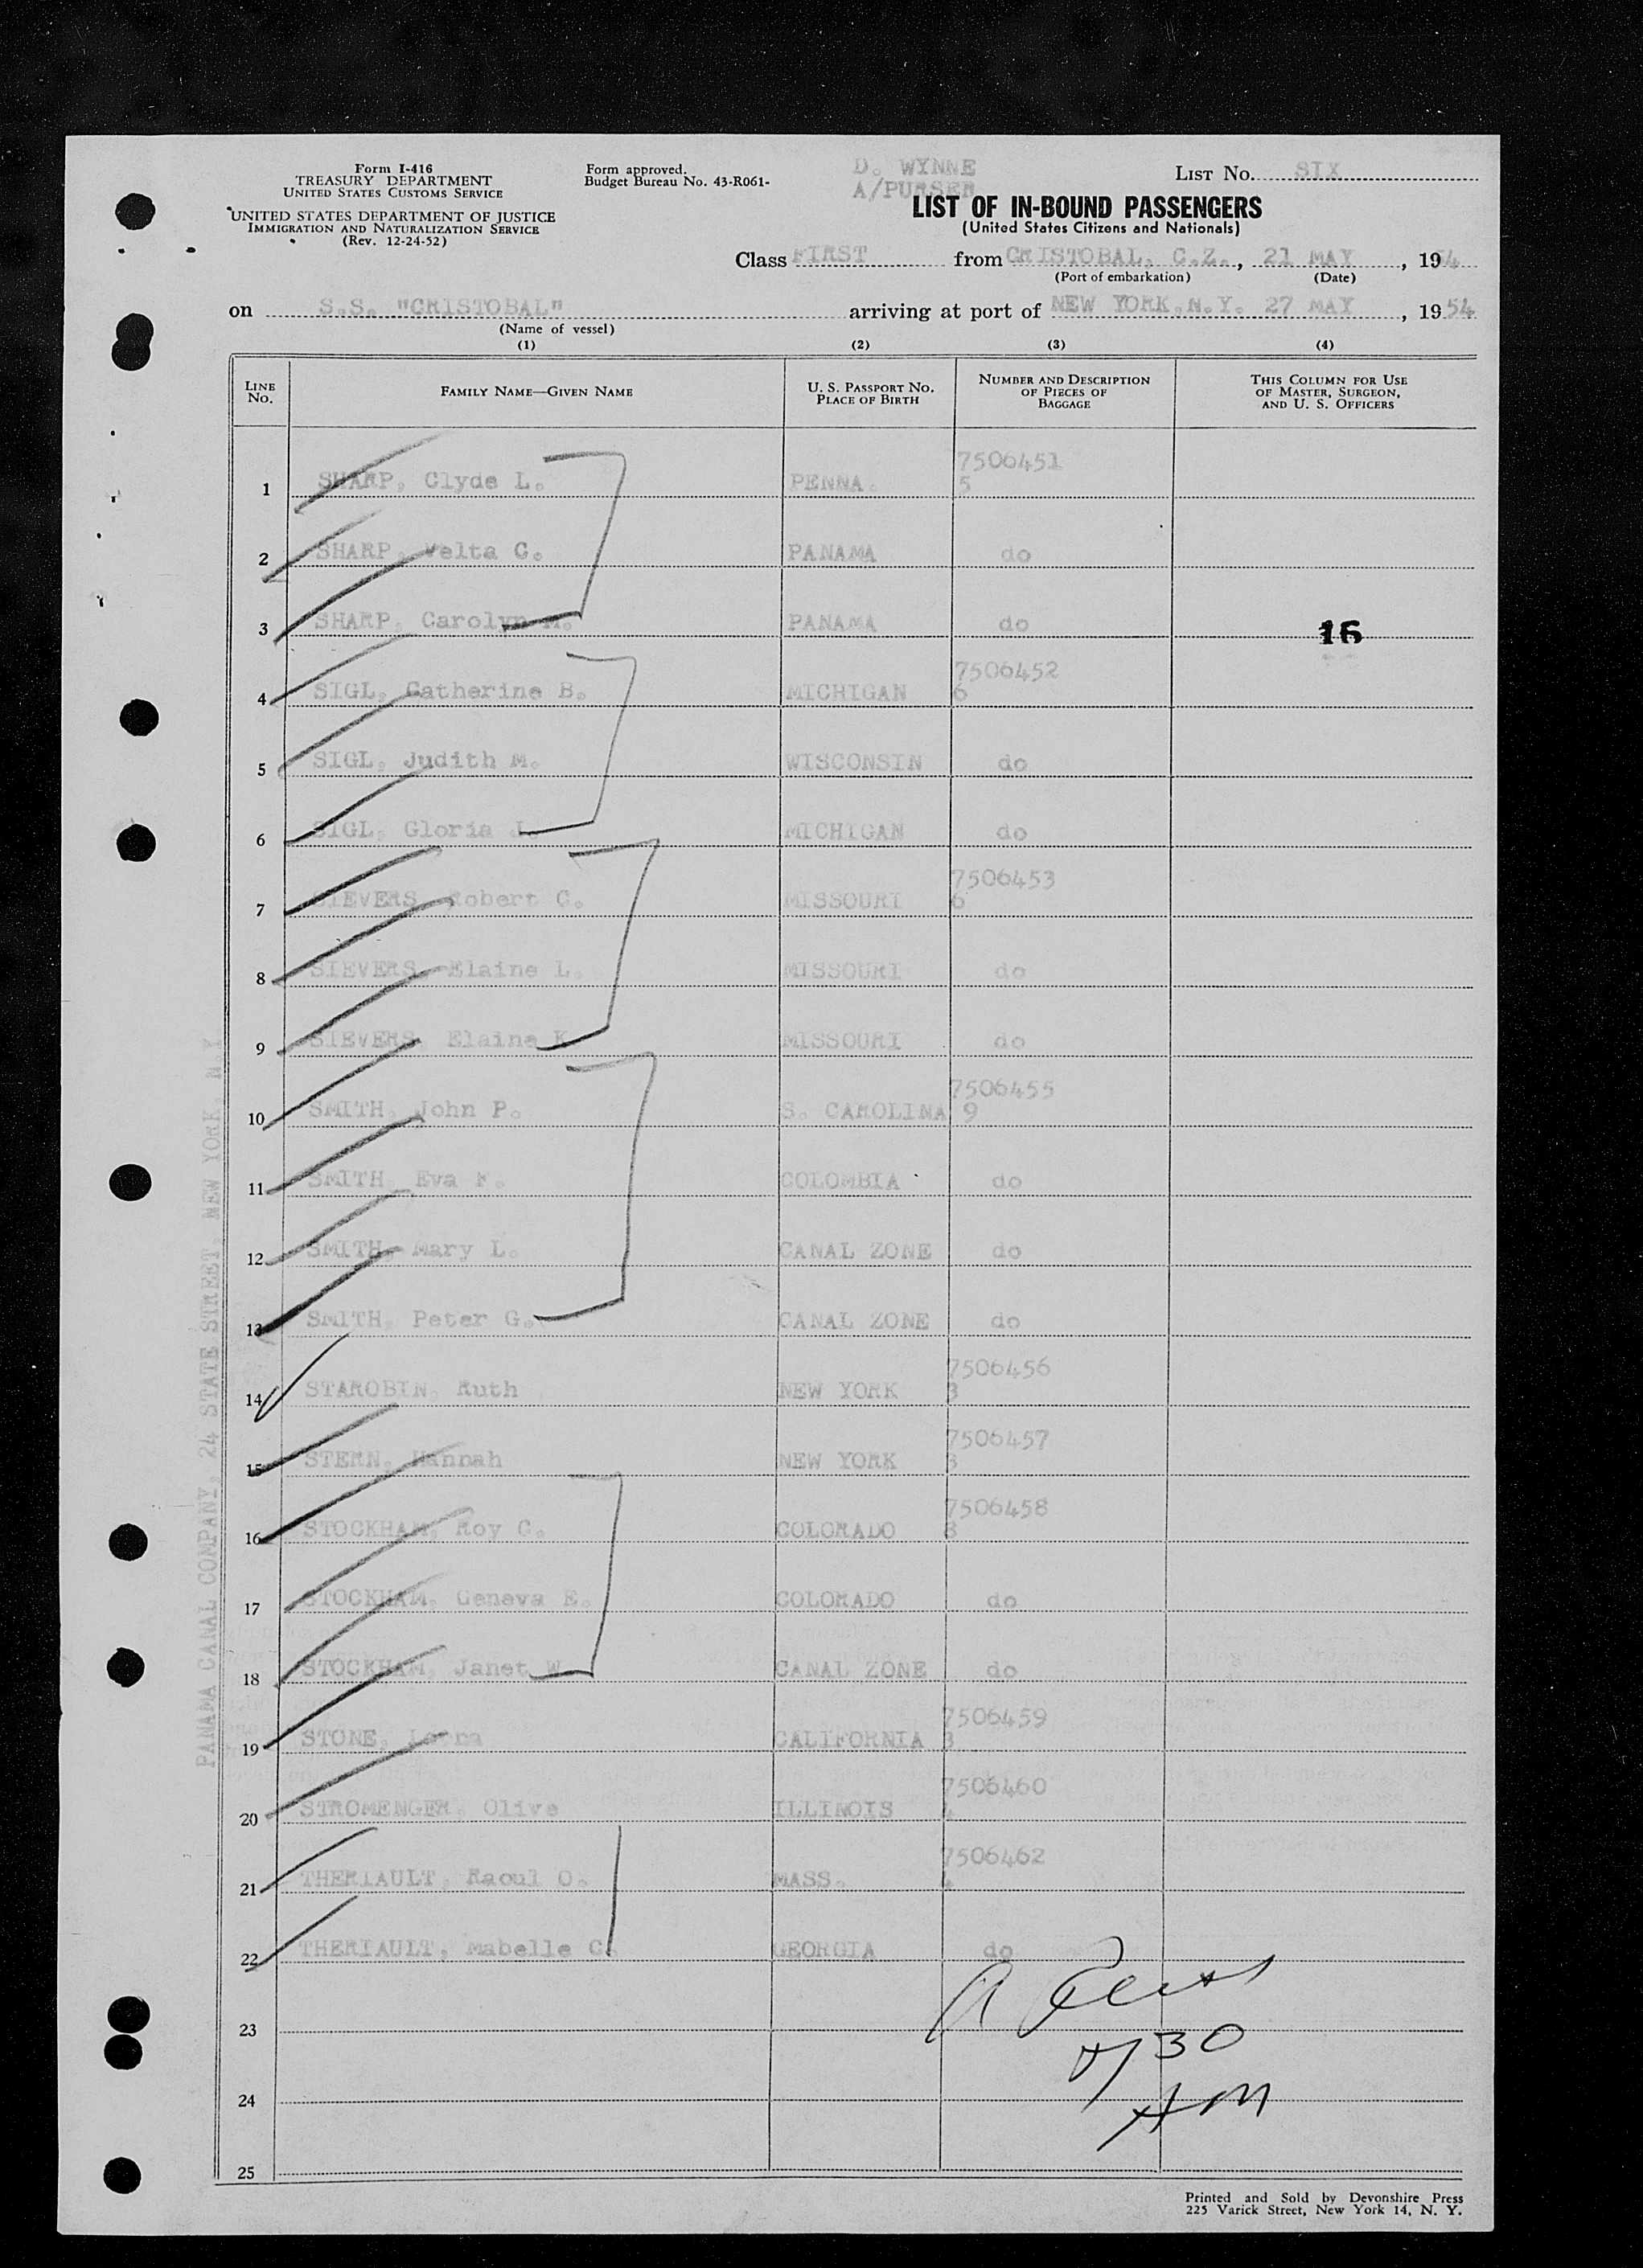 Form I-416
TREASURY DEPARTMENT
UNITED STATES CUSTOMS SERVICE
UNITED STATES DEPARTMENT OF JUSTICE
IMMIGRATION AND NATURALIZATION SERVICE
(Rev. 12-24-52)
Form approved.
Budget Bureau No. 43-R061-
D. WYNNE
A/PURSER
LIST No. SIX
LIST OF IN-BOUND PASSENGERS
(United States Citizens and Nationals)
Class FIRST from CRISTOBAL, C.Z., 21 MAY, 1954
(Port of embarkation) (Date)
on S.S. "CRISTOBAL" arriving at port of NEW YORK.N.Y. 27 MAY, 1954
(Name of vessel)
(1) (2) (3) (4)
LINE No. FAMILY NAME—GIVEN NAME U. S. PASSPORT NO. PLACE OF BIRTH NUMBER AND DESCRIPTION OF PIECES OF BAGGAGE THIS COLUMN FOR USE OF MASTER, SURGEON, AND U. S. OFFICERS
7506451
1 SHARP, Clyde L. PENNA. 5
2 SHARP, Velta C. PANAMA do
3 SHARP, Carolyn M. PANAMA do 16
7506452
4 SIGL, Catherine B. MICHIGAN 6
5 SIGL, Judith M. WISCONSIN do
6 SIGL, Gloria J. MICHIGAN do
7506453
7 SIEVERS, Robert C. MISSOURI 6
8 SIEVERS, Elaine L. MISSOURI do
9 SIEVERS, Elaine K. MISSOURI do
7506455
10 SMITH, John P. S. CAROLINA 9
11 SMITH, Eva F. COLOMBIA do
12 SMITH, Mary L. CANAL ZONE do
13 SMITH, Peter G. CANAL ZONE do
7506456
14 STAROBIN, Ruth NEW YORK 3
7506457
15 STERN, Hannah NEW YORK 3
7506458
16 STOCKHAM, Roy C. COLORADO 8
17 STOCKHAM, Geneva E. COLORADO do
18 STOCKHAM, Janet W. CANAL ZONE do
7506459
19 STONE, Lorna CALIFORNIA 3
7506460
20 STROMENGER, Olive ILLINOIS 4
7506462
21 THERIAULT, Raoul O. MASS. 4
22 THERIAULT, Mabelle C. GEORGIA do
23
730
24
AM
25
PANAMA CANAL COMPANY, 24 STATE STREET, NEW YORK, N.Y.
Printed and Sold by Devonshire Press
225 Varick Street, New York 14, N. Y.